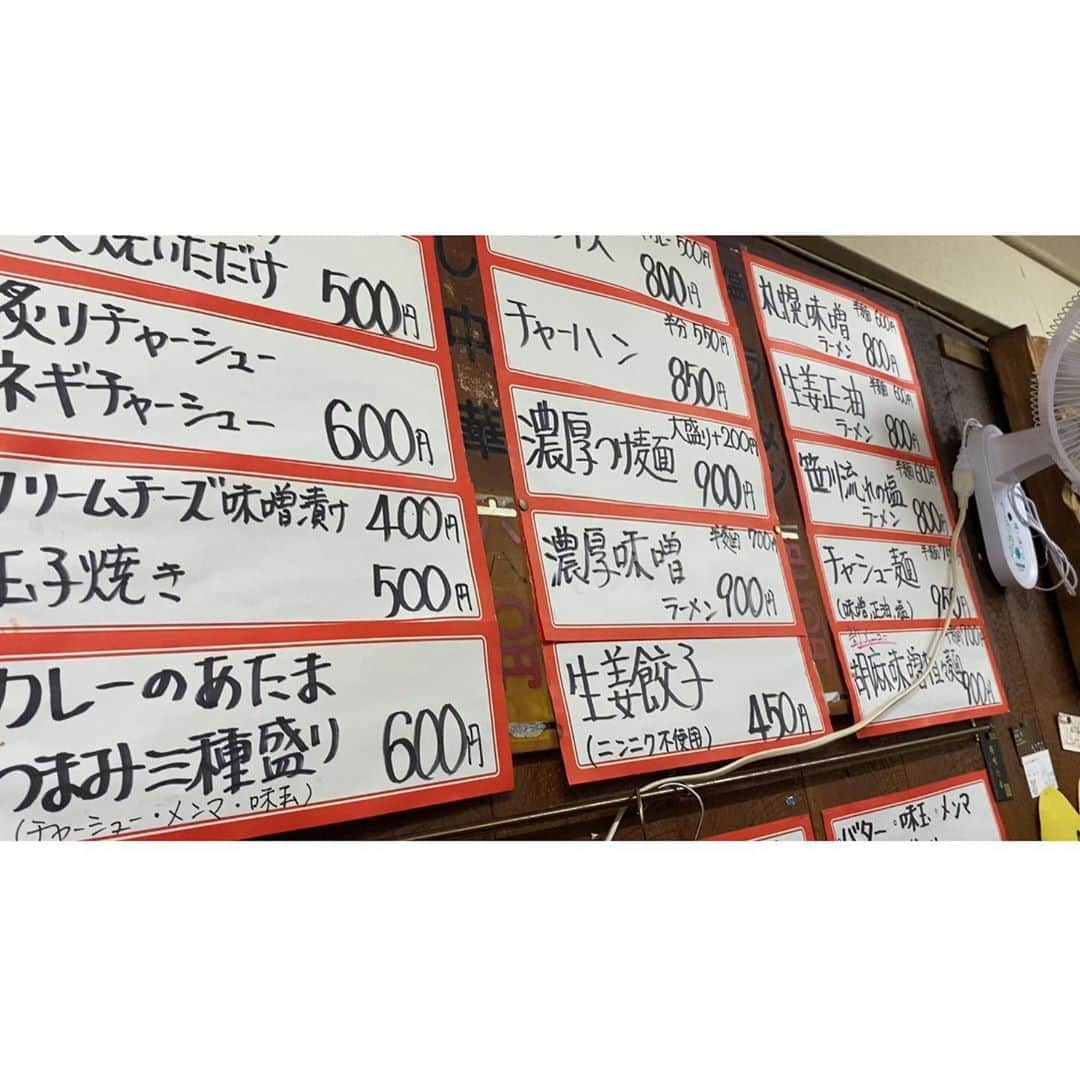 焼いただけ
500円
炙りチャーシュー
ネギチャーシュー
600円
クリームチーズ味噌漬け 400円
玉子焼き 500円
カレーのあたま
つまみ三種盛り 600円
(チャーシュー・メンマ・味玉)
し中華
500円
800円
チャーハン 半分550円
850円
濃厚つけ麺 大盛り+200円
900円
濃厚味噌 半麺 700円
ラーメン 900円
生姜餃子
(ニンニク不使用) 450円
札幌味噌 半麺 600円
ラーメン 800円
生姜正油 半麺 600円
ラーメン 800円
笹川流れの塩 半麺 600円
ラーメン 800円
チャーシュー麺 半麺
(味噌,正油,塩) 950円
胡麻味噌担々麺 半麺 700円
900円
バター・味玉・メンマ